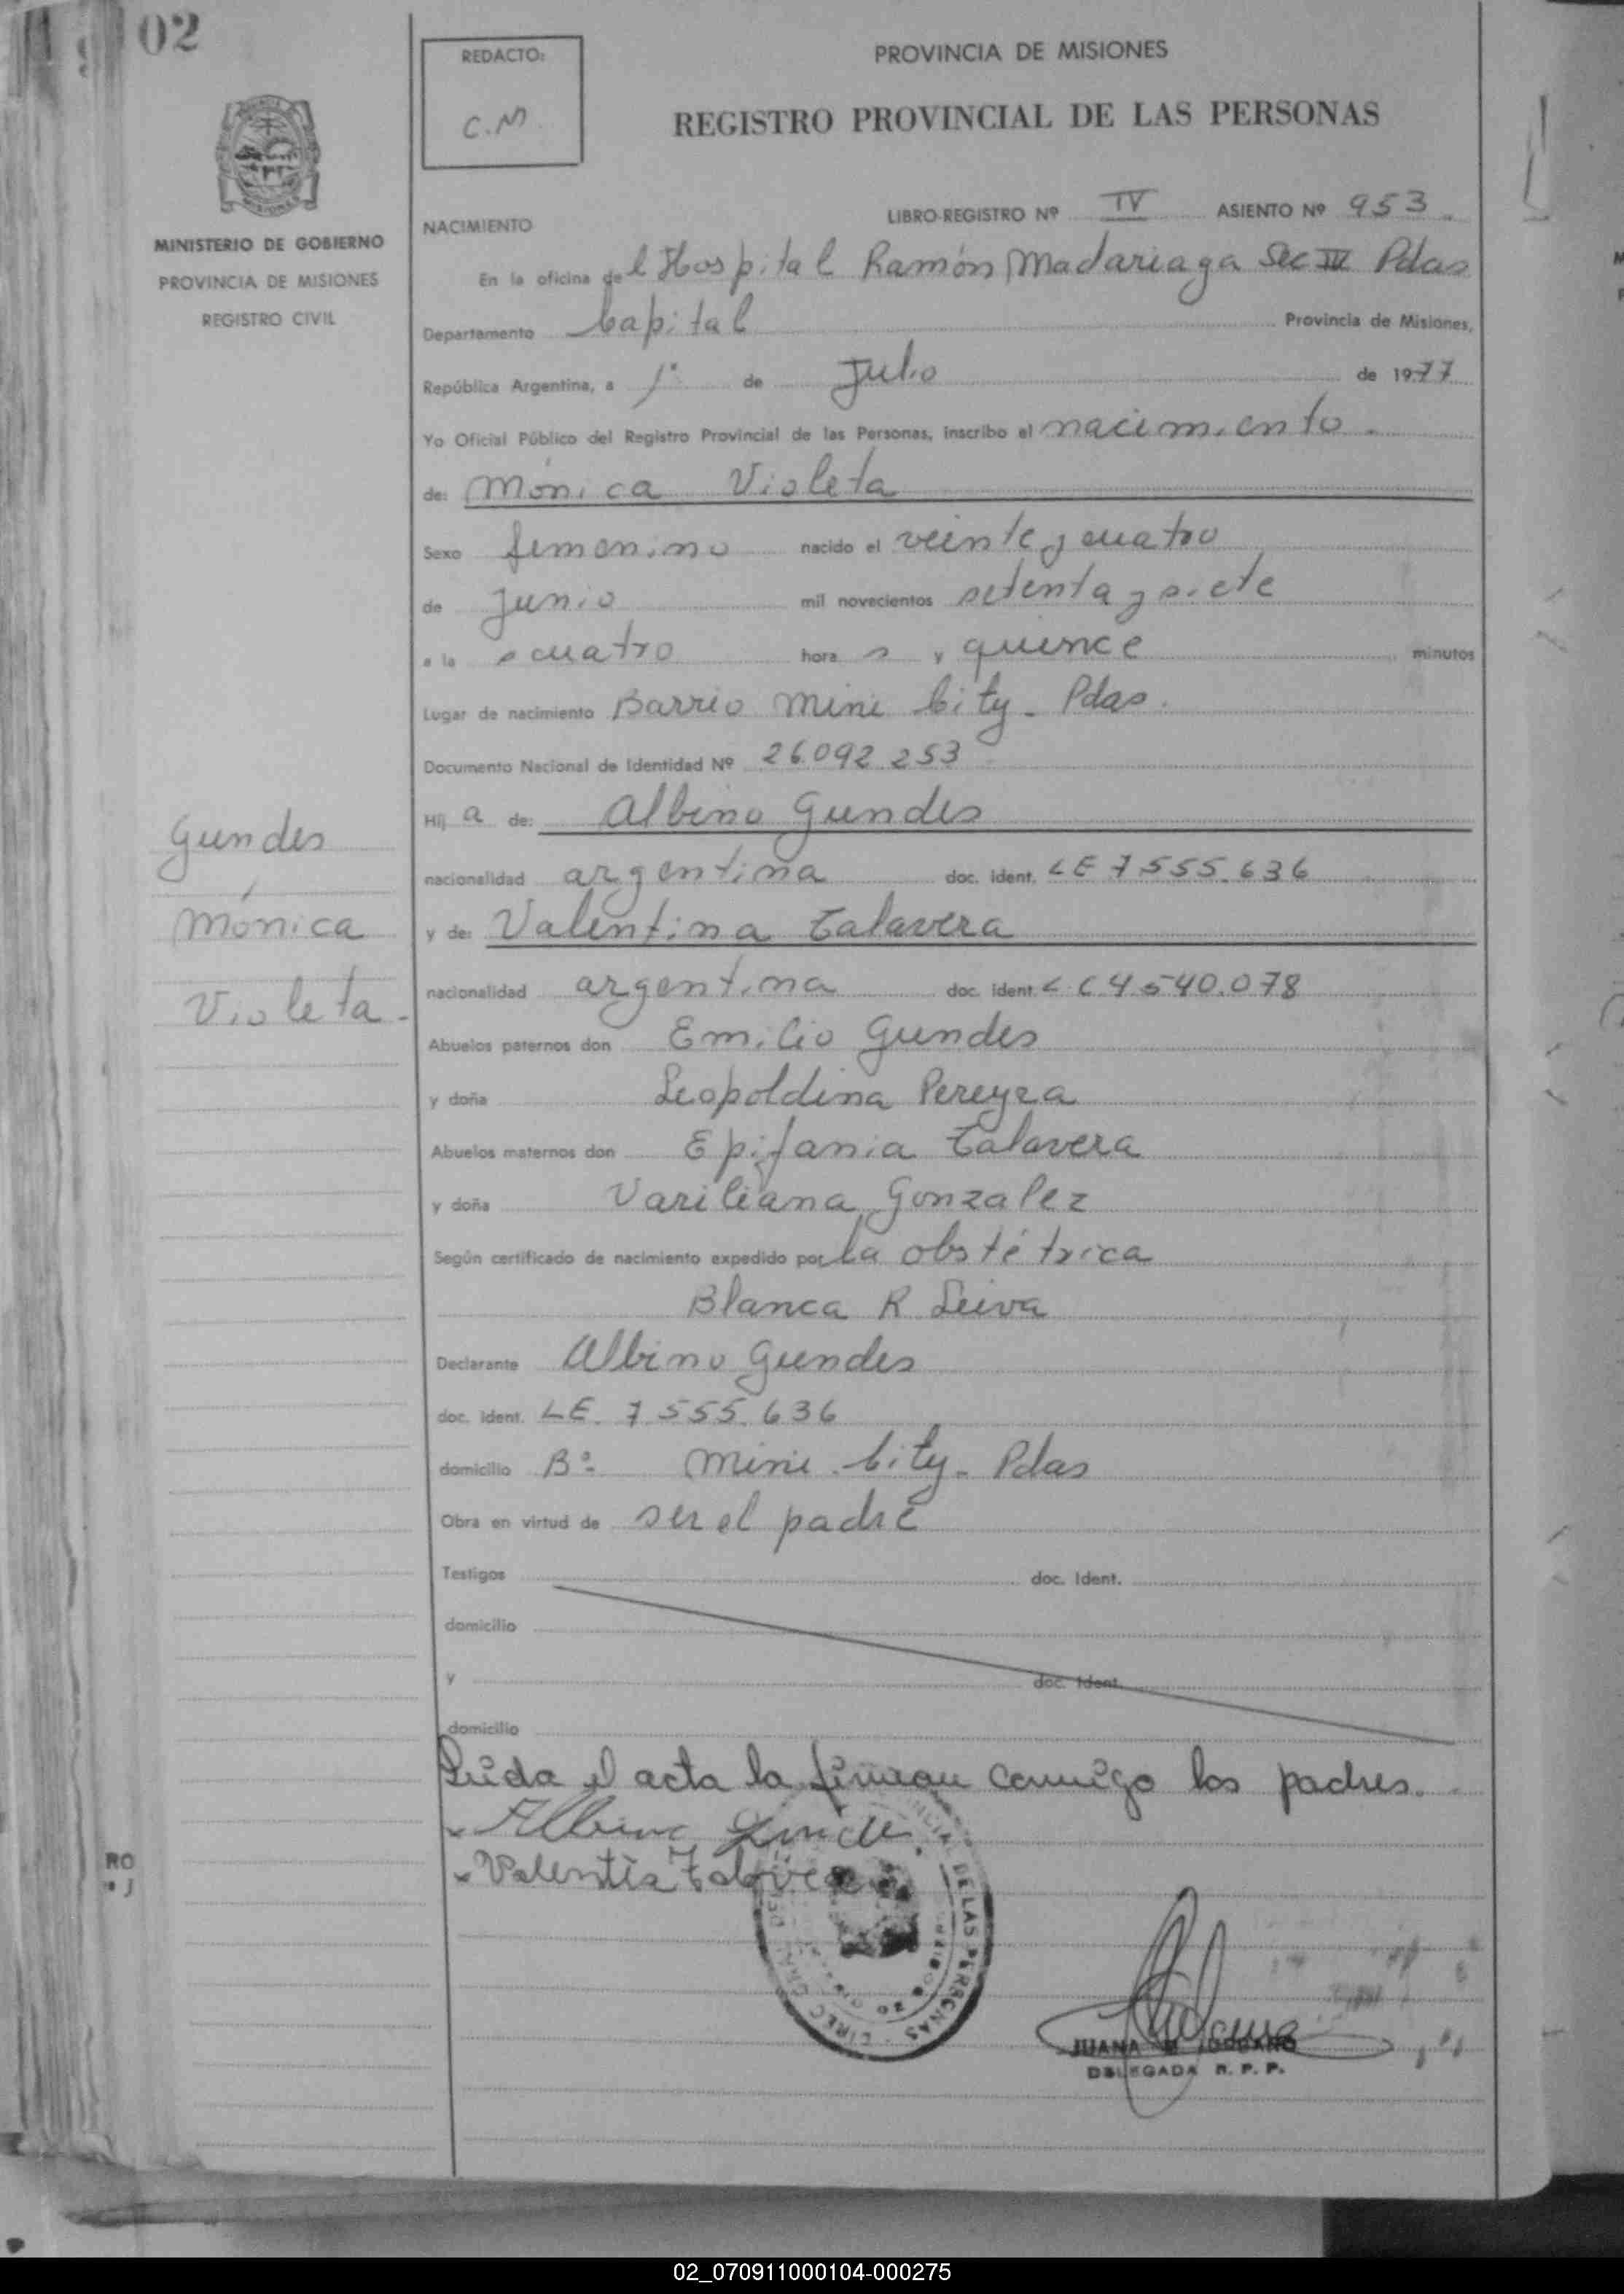 02
REDACTO:
C.M.
PROVINCIA DE MISIONES
REGISTRO PROVINCIAL DE LAS PERSONAS
MINISTERIO DE GOBIERNO
PROVINCIA DE MISIONES
REGISTRO CIVIL
LIBRO-REGISTRO Nº IV ASIENTO Nº 953
NACIMIENTO
En la oficina del Hospital Ramón Madariaga Sec IV Pdas
Departamento Capital Provincia de Misiones,
República Argentina, a 1º de Julio de 1977
Yo Oficial Público del Registro Provincial de las Personas, inscribo el nacimiento.
de: Mónica Violeta
Sexo femenino nacido el veinte y cuatro
de junio mil novecientos setenta y siete
a la s cuatro hora s y quince minutos
Lugar de nacimiento Barrio Mini City - Pdas.
Documento Nacional de Identidad Nº 26.092.253
Hij a de: Albino Gundes
nacionalidad argentina doc. ident. LE 7.555.636
y de: Valentina Talavera
nacionalidad argentina doc. ident. LC 4.540.078
Abuelos paternos don Emilio Gundes
y doña Leopoldina Pereyra
Abuelos maternos don Epifania Talavera
y doña Variliana Gonzalez
Según certificado de nacimiento expedido por la obstétrica
Blanca R Leiva
Declarante Albino Gundes
doc. ident. LE. 7.555.636
domicilio Bº- Mini City - Pdas
Obra en virtud de ser el padre
Testigos doc. Ident.
domicilio
y doc. Ident.
domicilio
Leida el acta la firman conmigo los padres.
Albino
Valentia Talavera
Gundes
Mónica
Violeta.
RO
DE LAS PERSONAS
JUANA
DELEGADA R. P. P.
02_070911000104-000275